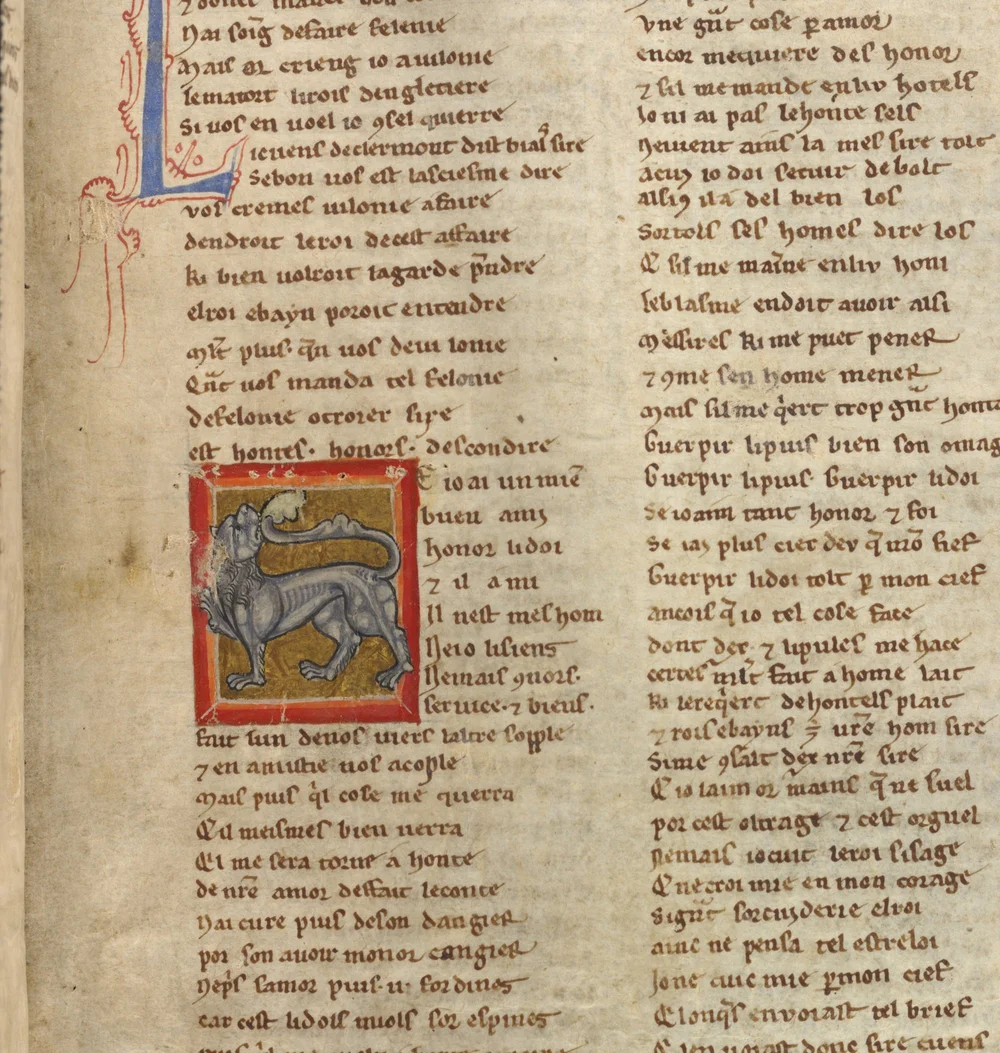 Nai soīg defaire felenie
Mais or crieng io auilonie
lematort lirois dengletiere
Si uos en uoel io ꝯsel quierre
Lieuens declermont dist biaꝰ sire
Sebon uos est lasciesme dire
vos cremes uilonie afaire
dendroit leroi decest affaire
ki bien uolroit lagarde p̄ndre
elroi ebayn poroit entendre
Ml̄t plus· qͣn uos deui lonie
Qn̄t uos manda tel felonie
defelonie otroier sire
est hontes· honors· descondire
E io ai un mīe
buen amy
honor lidoi
⁊ il a mi
Il nest mes hom
Neio lisiens
Nemais ꝯuors·
seruice· ⁊ biens·
fait lun deuos uiers laltre sople
⁊ en amistie uos acople
Mais puis q̇l cose me querra
Cil meismes bien uerra
Ql me sera torne a honte
de nr̄e amor deffait leconte
Nai cure puis deson dangier
por son auoir monor cangier
Nep̄s samor puis· u· fordines
car cest lidols muols sor espines
Vne gn̄t cose ꝑ amor
encor mequiere des honor
⁊ sil memande enliu hotels
Io ni ai pas lehonte sels
Neuent ains la mes sire tolt
Acuy io doi seruir debolt
alsiꝯ ila del bien los
Sortols ses homes dire los
E sil me maīne enliu honi
leblasme endoit auoir alsi
Messires ki me puet pener
⁊ ꝯme sen home mener
Mais sil me q̇ert trop gn̄t honta
Guerpir lipuis bien son omag
Guerpir lipuis Guerpir lidoi
Se ioaim tant honor ⁊ foi
Se iay plus cier dex q̄ mō fief
Guerpir lidoi tolt ꝑ mon cief
ancois q̄ io tel cose face
dont dex· ⁊ lipules me hace
certes ml̄t fait a home lait
ki lereq̇ert dehontels plait
⁊ rois ebayns ÷ ur̄e hom sire
Sime ꝯsalt dex nr̄e sire
E io laim or mains q̄ ne suel
por cest oltrage ⁊ cest orguel
Nemais iocuit leroi sisage
Q necroi mie en mon corage
Si gn̄t sorcuyderie elroi
ainc ne pensa tel estreloi
Io ne cuic mie ꝑ mon cief
Q lonq̇s enuoiast tel brief